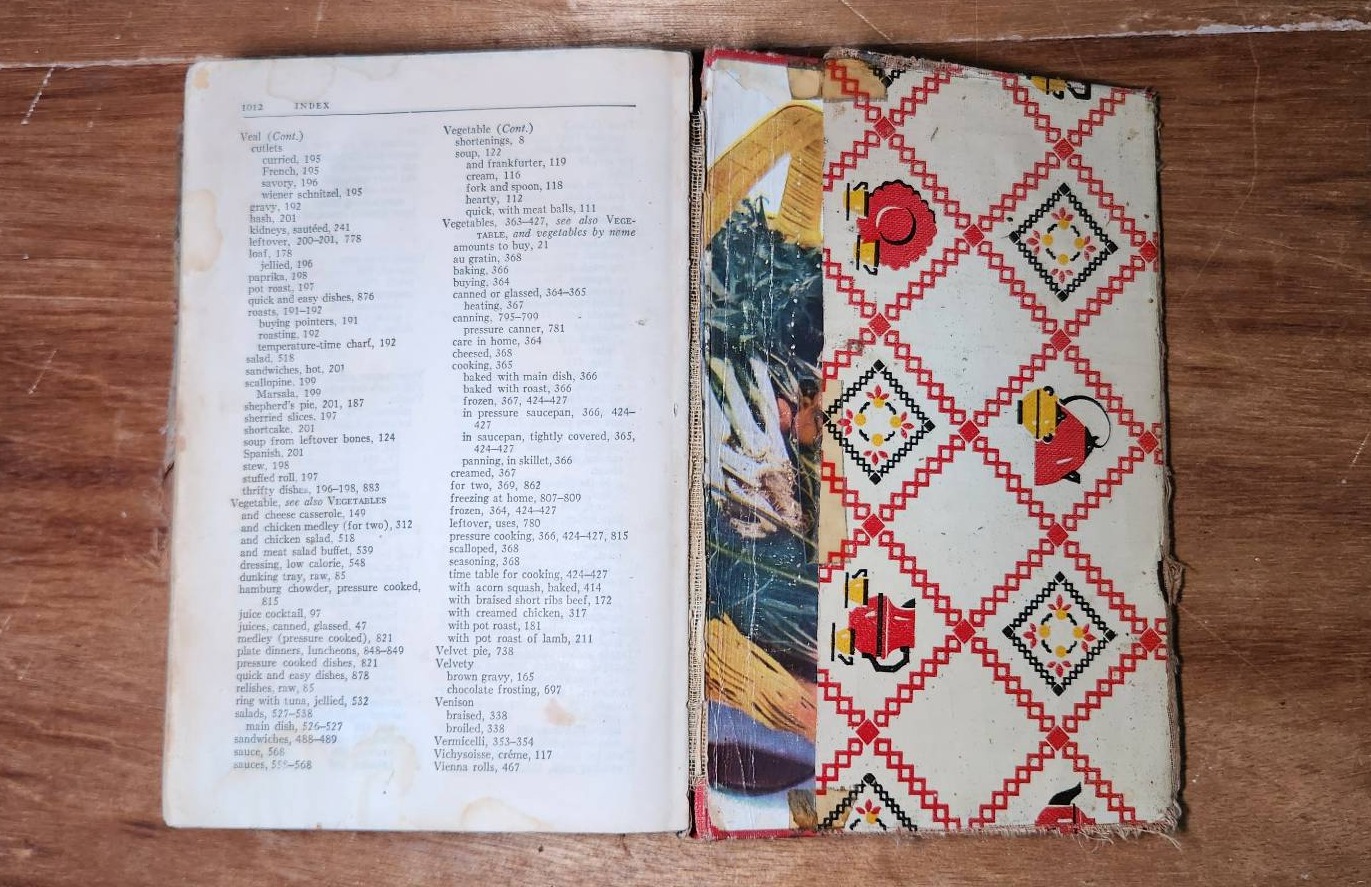 1012 INDEX
Veal (Cont.)
cutlets
curried, 195
French, 195
savory, 196
wiener schnitzel, 195
gravy, 192
hash, 201
kidneys, sautéed, 241
leftover, 200–201, 778
loaf, 178
jellied, 196
paprika, 198
pot roast, 197
quick and easy dishes, 876
roasts, 191–192
buying pointers, 191
roasting, 192
temperature-time chart, 192
salad, 518
sandwiches, hot, 201
scallopine, 199
Marsala, 199
shepherd's pie, 201, 187
sherried slices, 197
shortcake, 201
soup from leftover bones, 124
Spanish, 201
stew, 198
stuffed roll, 197
thrifty dishes, 196–198, 883
Vegetable, see also VEGETABLES
and cheese casserole, 149
and chicken medley (for two), 312
and chicken salad, 518
and meat salad buffet, 539
dressing, low calorie, 548
dunking tray, raw, 85
hamburg chowder, pressure cooked,
815
juice cocktail, 97
juices, canned, glassed, 47
medley (pressure cooked), 821
plate dinners, luncheons, 848–849
pressure cooked dishes, 821
quick and easy dishes, 878
relishes, raw, 85
ring with tuna, jellied, 532
salads, 527–538
main dish, 526–527
sandwiches, 488–489
sauce, 568
sauces, 555–568
Vegetable (Cont.)
shortenings, 8
soup, 122
and frankfurter, 119
cream, 116
fork and spoon, 118
hearty, 112
quick, with meat balls, 111
Vegetables, 363–427, see also VEGE-
TABLE, and vegetables by name
amounts to buy, 21
au gratin, 368
baking, 366
buying, 364
canned or glassed, 364–365
heating, 367
canning, 795–799
pressure canner, 781
care in home, 364
cheesed, 368
cooking, 365
baked with main dish, 366
baked with roast, 366
frozen, 367, 424–427
in pressure saucepan, 366, 424–
427
in saucepan, tightly covered, 365,
424–427
panning, in skillet, 366
creamed, 367
for two, 369, 862
freezing at home, 807–809
frozen, 364, 424–427
leftover, uses, 780
pressure cooking, 366, 424–427, 815
scalloped, 368
seasoning, 368
time table for cooking, 424–427
with acorn squash, baked, 414
with braised short ribs beef, 172
with creamed chicken, 317
with pot roast, 181
with pot roast of lamb, 211
Velvet pie, 738
Velvety
brown gravy, 165
chocolate frosting, 697
Venison
braised, 338
broiled, 338
Vermicelli, 353–354
Vichysoisse, créme, 117
Vienna rolls, 467